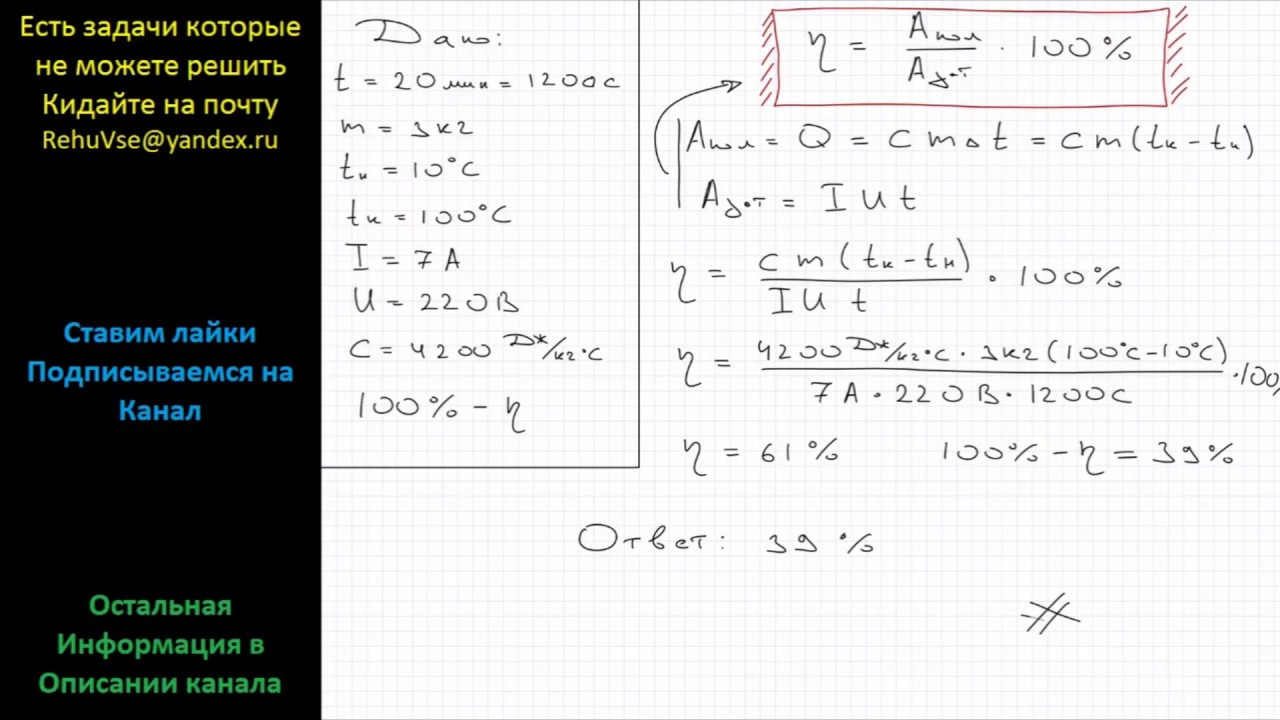 Есть задачи которые
не можете решить
Кидайте на почту
RehuVse@yandex.ru
Ставим лайки
Подписываемся на
Канал
Остальная
Информация в
Описании канала
Дано:
t = 20 мин = 1200с
m = 3кг
tн = 10°C
tк = 100°C
I = 7 А
U = 220В
C = 4200 Дж/кг·с
100% - η
η = Aпол / Aзат · 100%
Aпол = Q = c m Δ t = c m (tк - tн)
Aзат = I U t
η = c m (tк - tн) / I U t · 100%
η = 4200 Дж/кг·с · 3кг (100°C - 10°C) / 7 А · 220 В · 1200с · 100%
η = 61 %
100% - η = 39%
Ответ: 39 %